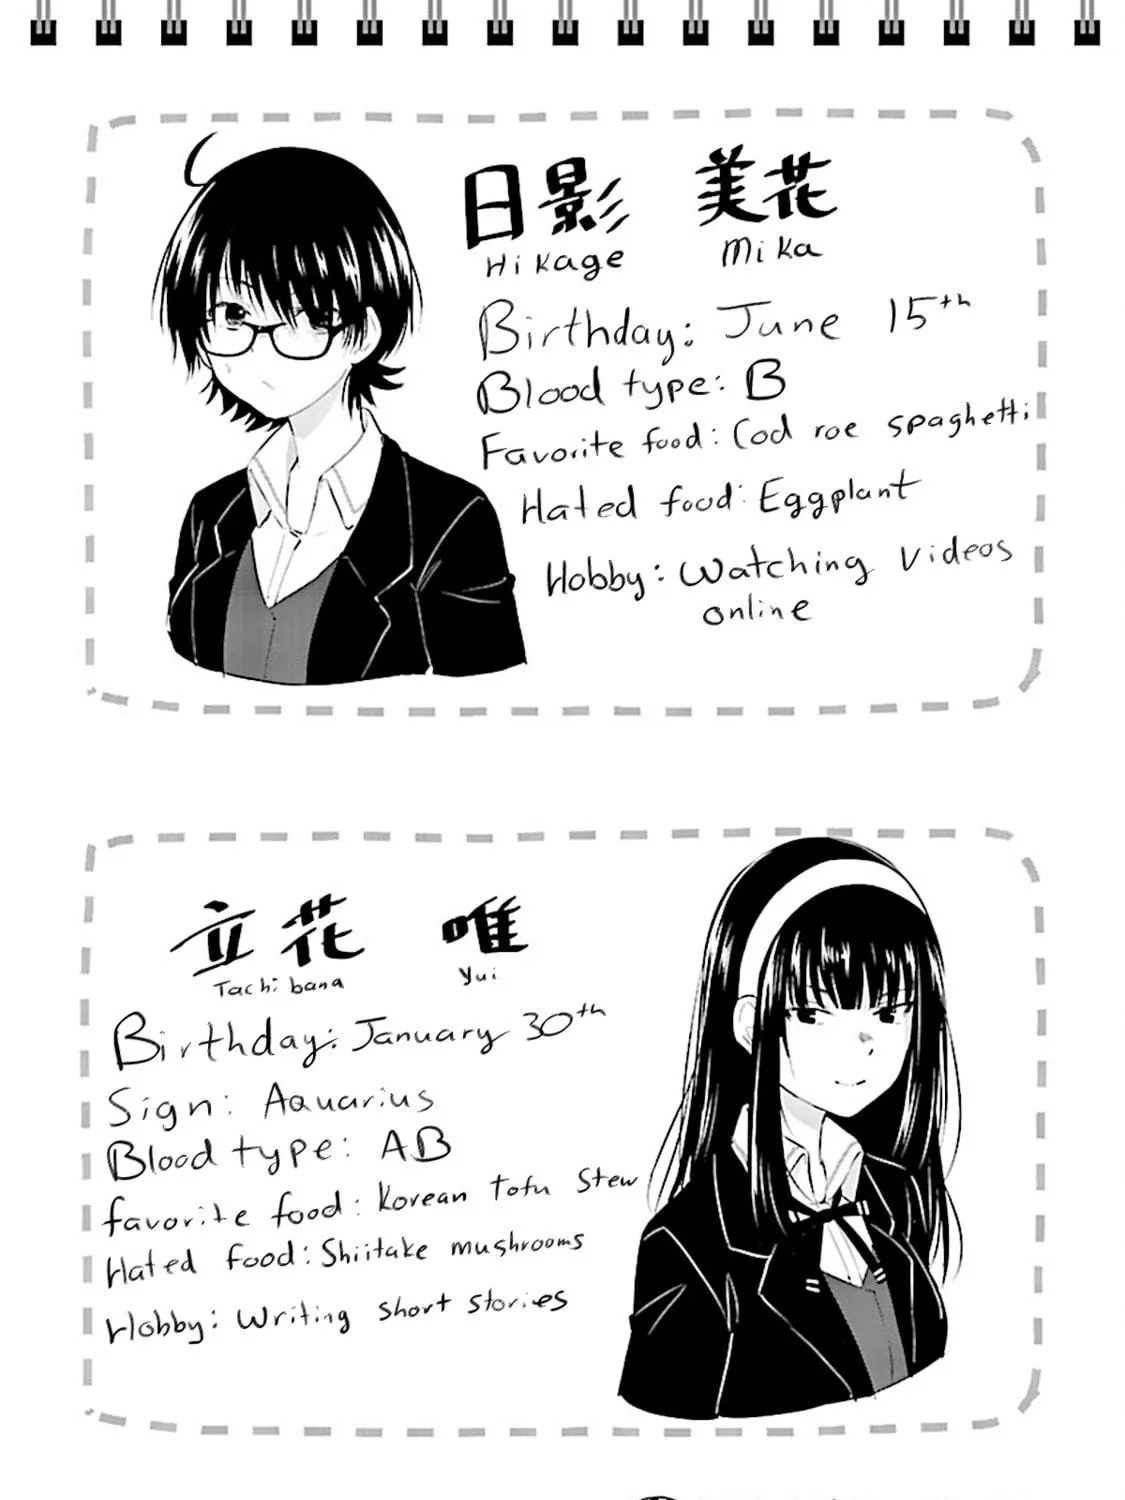 日影 美花
Hikage Mika
Birthday: June 15th
Blood type: B
Favorite food: Cod roe spaghetti
Hated food: Eggplant
Hobby: Watching videos
online
立花 唯
Tachibana Yui
Birthday: January 30th
Sign: Aquarius
Blood type: AB
favorite food: Korean Tofu Stew
Hated food: Shiitake mushrooms
Hobby: Writing short stories